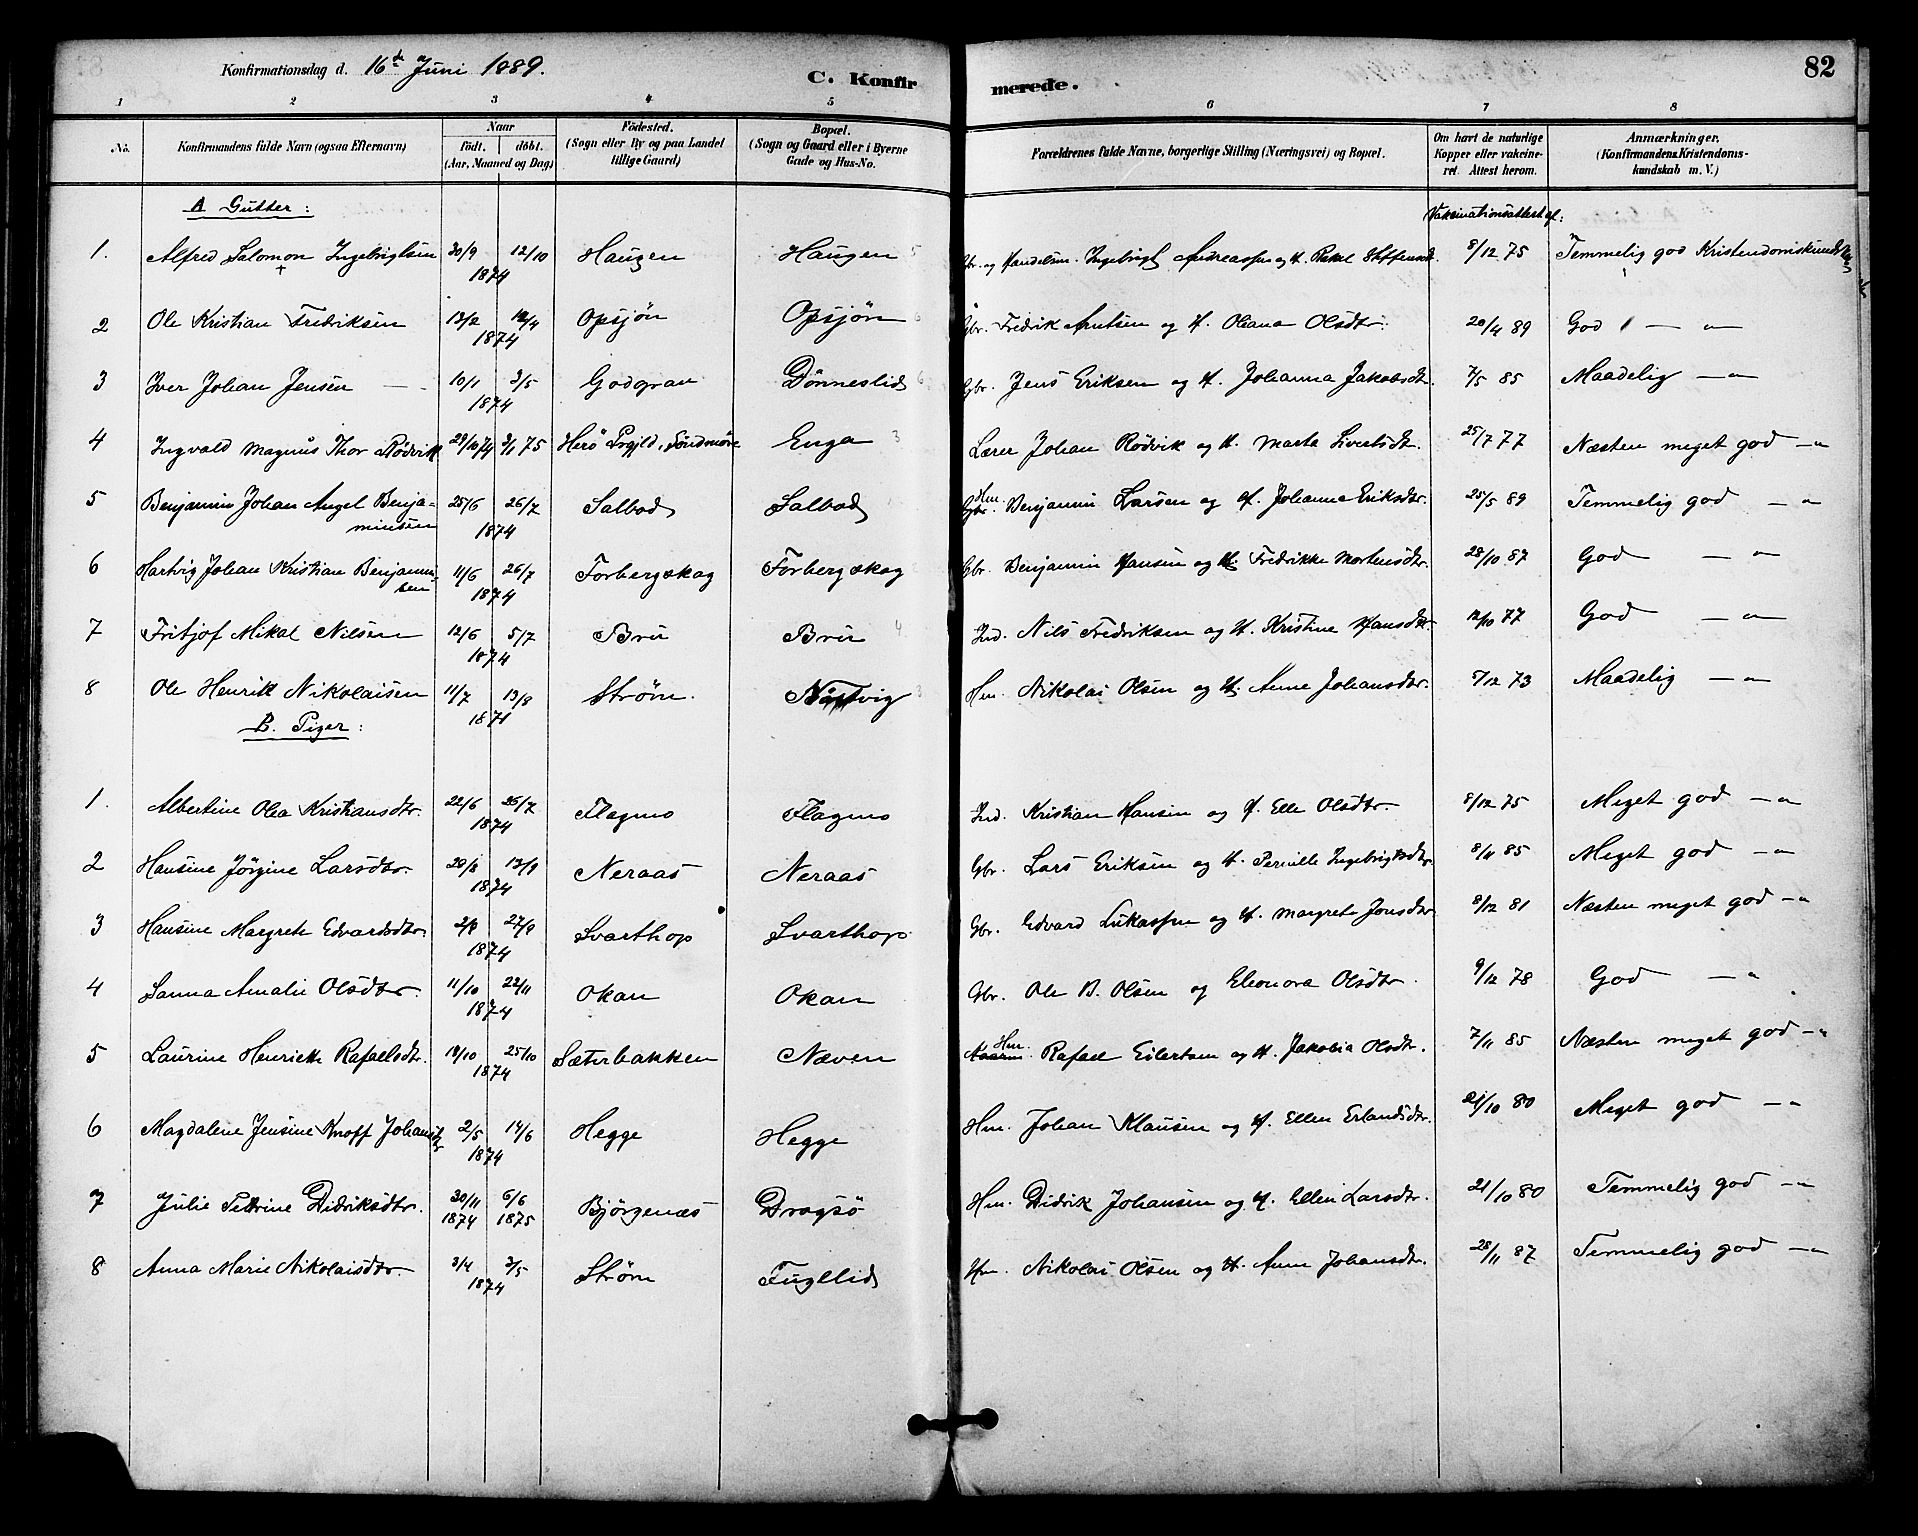 Konfirmationsdag d. 16de Juni 1889.
C. Konfirmerede.
82
1 2 3 4 5 6 7 8
No. | Konfirmandens fulde Navn (ogsaa Efternavn) | Naar født. døbt. (Aar, Maaned og Dag) | Fødested. (Sogn eller By og paa Landet tillige Gaard) | Bopæl. (Sogn og Gaard eller i Byerne Gade og Hus-No. | Forældrenes fulde Navne, borgerlige Stilling (Næringsvei) og Bopæl. | Om havt de naturlige Kopper eller vakcineret. Attest herom. | Anmærkninger, (Konfirmandens Kristendomskundskab m. V.)
A Gutter: Vaksinationsattest af:
1. Alfred Salomon Ingebrigtsen 30/9 12/10 1874 Haugen Haugen 5 Gbr. og Handelsm. Ingebrigt Andreassen og H. Rakel Steffensdt. 8/12 75 Temmelig god Kristendomskundskab
2 Ole Kristian Fredriksen 13/2 12/4 1874 Opsjön Opsjön 6 Gbr. Fredrik Arntsen og H. Oliana Olsdtr. 20/4 89 God — "
3 Iver Johan Jensen 10/1 3/5 1874 Godgran Dönneslid 6 Gbr. Jens Eriksen og H. Johanna Jakobsdt. 7/5 85 Maadelig — "
4 Ingvald Magnus Thor Rødvik 29/10 74 3/1 75 Herö Prgjld, Söndmöre Enga 3 Lærer Johan Rødvik og H. Marta Sivertsdt. 25/7 77 Næsten meget god — "
5 Benjamin Johan Angel Benjaminsen 25/6 26/7 1874 Salbod Salbod Hm. Benjamin Larsen og H. Johanna Eriksdtr. 25/5 89 Temmelig god — "
6 Hartvig Johan Kristian Benjaminsen 11/6 26/7 1874 Forbergskag Forbergskag Gbr. Benjamin Hansen og H. Fredrikke Mortensdtr. 28/10 87 God — "
7 Fritjof Mikal Nilsen 12/6 5/7 1874 Bru Bru 4 Ind. Nils Fredriksen og H. Kristine Hansdtr. 12/10 77 God — "
8 Ole Henrik Nikolaisen 11/7 13/8 1871 Strøm. Nástvig 3 Hm. Nikolai Olsen og H. Anne Johansdtr. 5/12 73 Maadelig — "
B. Piger:
1. Albertine Olea Kristiansdtr. 22/6 26/7 1874 Flagmo Flagmo Ind. Kristian Hansen og H. Elle Olsdtr. 8/12 75 Meget god — "
2 Hansine Jörgine Larsdtr. 20/8 13/9 1874 Neraas Neraas Gbr. Lars Eriksen og H. Pernille Ingebrigtsdtr 8/11 85 Meget god — "
3 Hansine Margrete Edvardsdtr. 2/8 27/9 1874 Svarthop Svarthop Gbr. Edvard Lukassen og H. Margrete Jonsdtr 8/12 81 Næsten meget god — "
4 Sanna Amalie Olsdtr. 11/10 22/11 1874 Okan Okan Gbr. Ole B. Olsen og Eleonora Olsdtr. 9/12 78 God — "
5 Laurine Henrikke Rafaelsdtr. 14/10 25/10 1874 Sæterbakken Næven Hm. Rafael Eilertsen og H. Jakobia Olsdtr. 7/11 85 Næsten meget god — "
6 Magdalene Jensine Knoff Johansdtr 2/5 14/6 1874 Hegge Hegge Hm. Johan Klausen og H. Ellen Erlandsdtr. 21/10 80 Meget god — "
7 Julie Petrine Didriksdtr. 30/11 1874 6/6 1875 Bjørgenæs Dragsö Hm. Didrik Johansen og H. Ellen Larsdtr. 21/10 80 Temmelig god — "
8 Anna Marie Nikolaisdtr. 3/4 3/5 1874 Strøm Fuglelid Hm. Nikolai Olsen og H. Anne Johansdtr. 28/11 87 Temmelig god — "